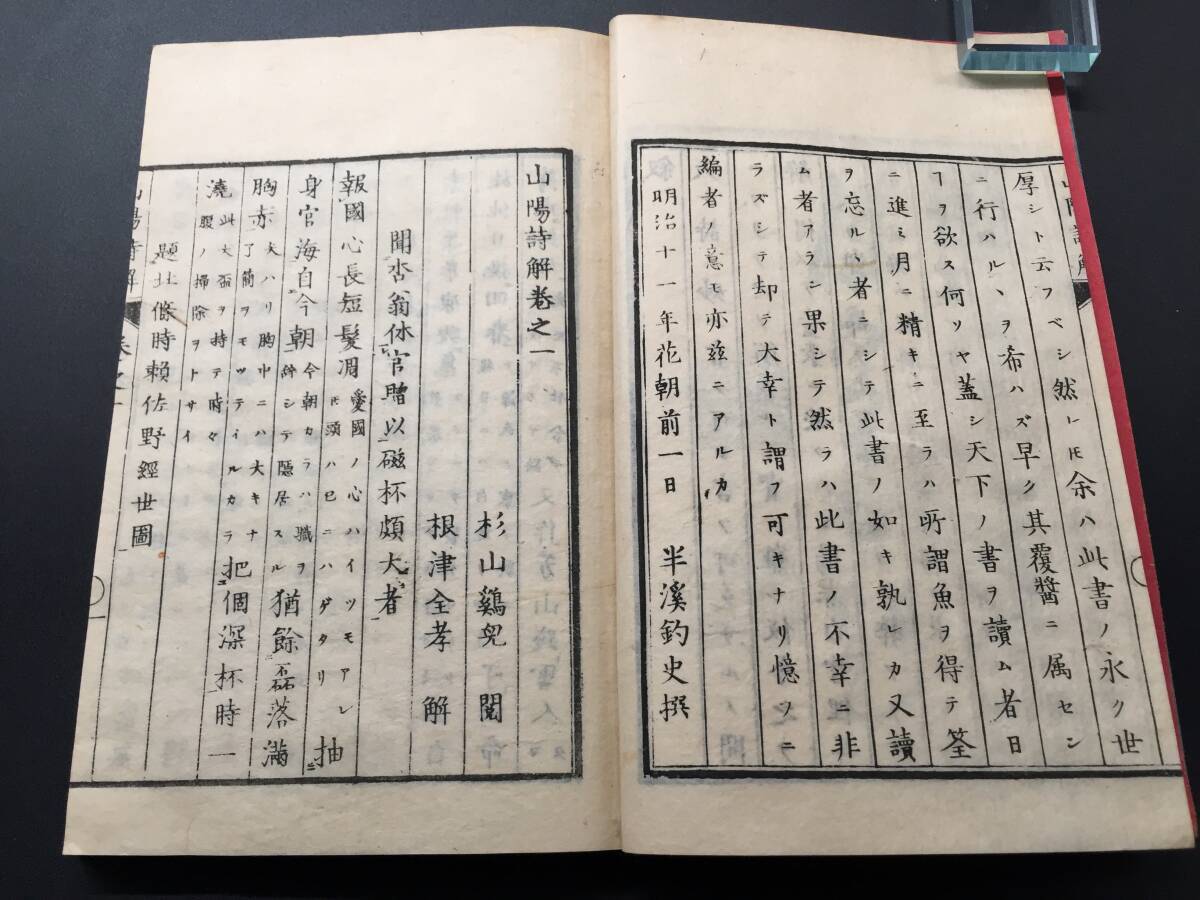 厚シト云フベシ然レ𪜈余ハ此書ノ永ク世
ニ行ハルヽヲ希ハズ早ク其覆醬ニ属セン
ヿヲ欲ス何ソヤ蓋シ天下ノ書ヲ讀ム者日
ニ進ミ月ニ精キニ至ラハ所謂魚ヲ得テ筌
ヲ忘ルヽ者ニシテ此書ノ如キ孰レカ又讀
ム者アランシ果シテ然ラハ此書ノ不幸ニ非
ラズシテ却テ大幸ト謂フ可キナリ憶ソニ
編者ノ意モ亦茲ニアルカ
明治十一年花朝前一日 半溪釣史撰
山陽詩解卷之一
杉山鷄兒閲
根津全孝解
聞杏翁休官贈以磁杯頗大者
報國心長短髮凋愛國ノ心ハイツモアレ𪜈頭ハ已ニハゲタリ抽
身官海自今朝今朝カラハ職ヲ辞シテ隱居スル猶餘磊落滿
胸赤大ハリ胸中ニハ大キナ了簡ヲモツテイルカラ把個深杯時一
澆此大盃ヲ持テ時々腹ノ掃除ヲトサイ
題北條時頼佐野經世圖
山陽詩解